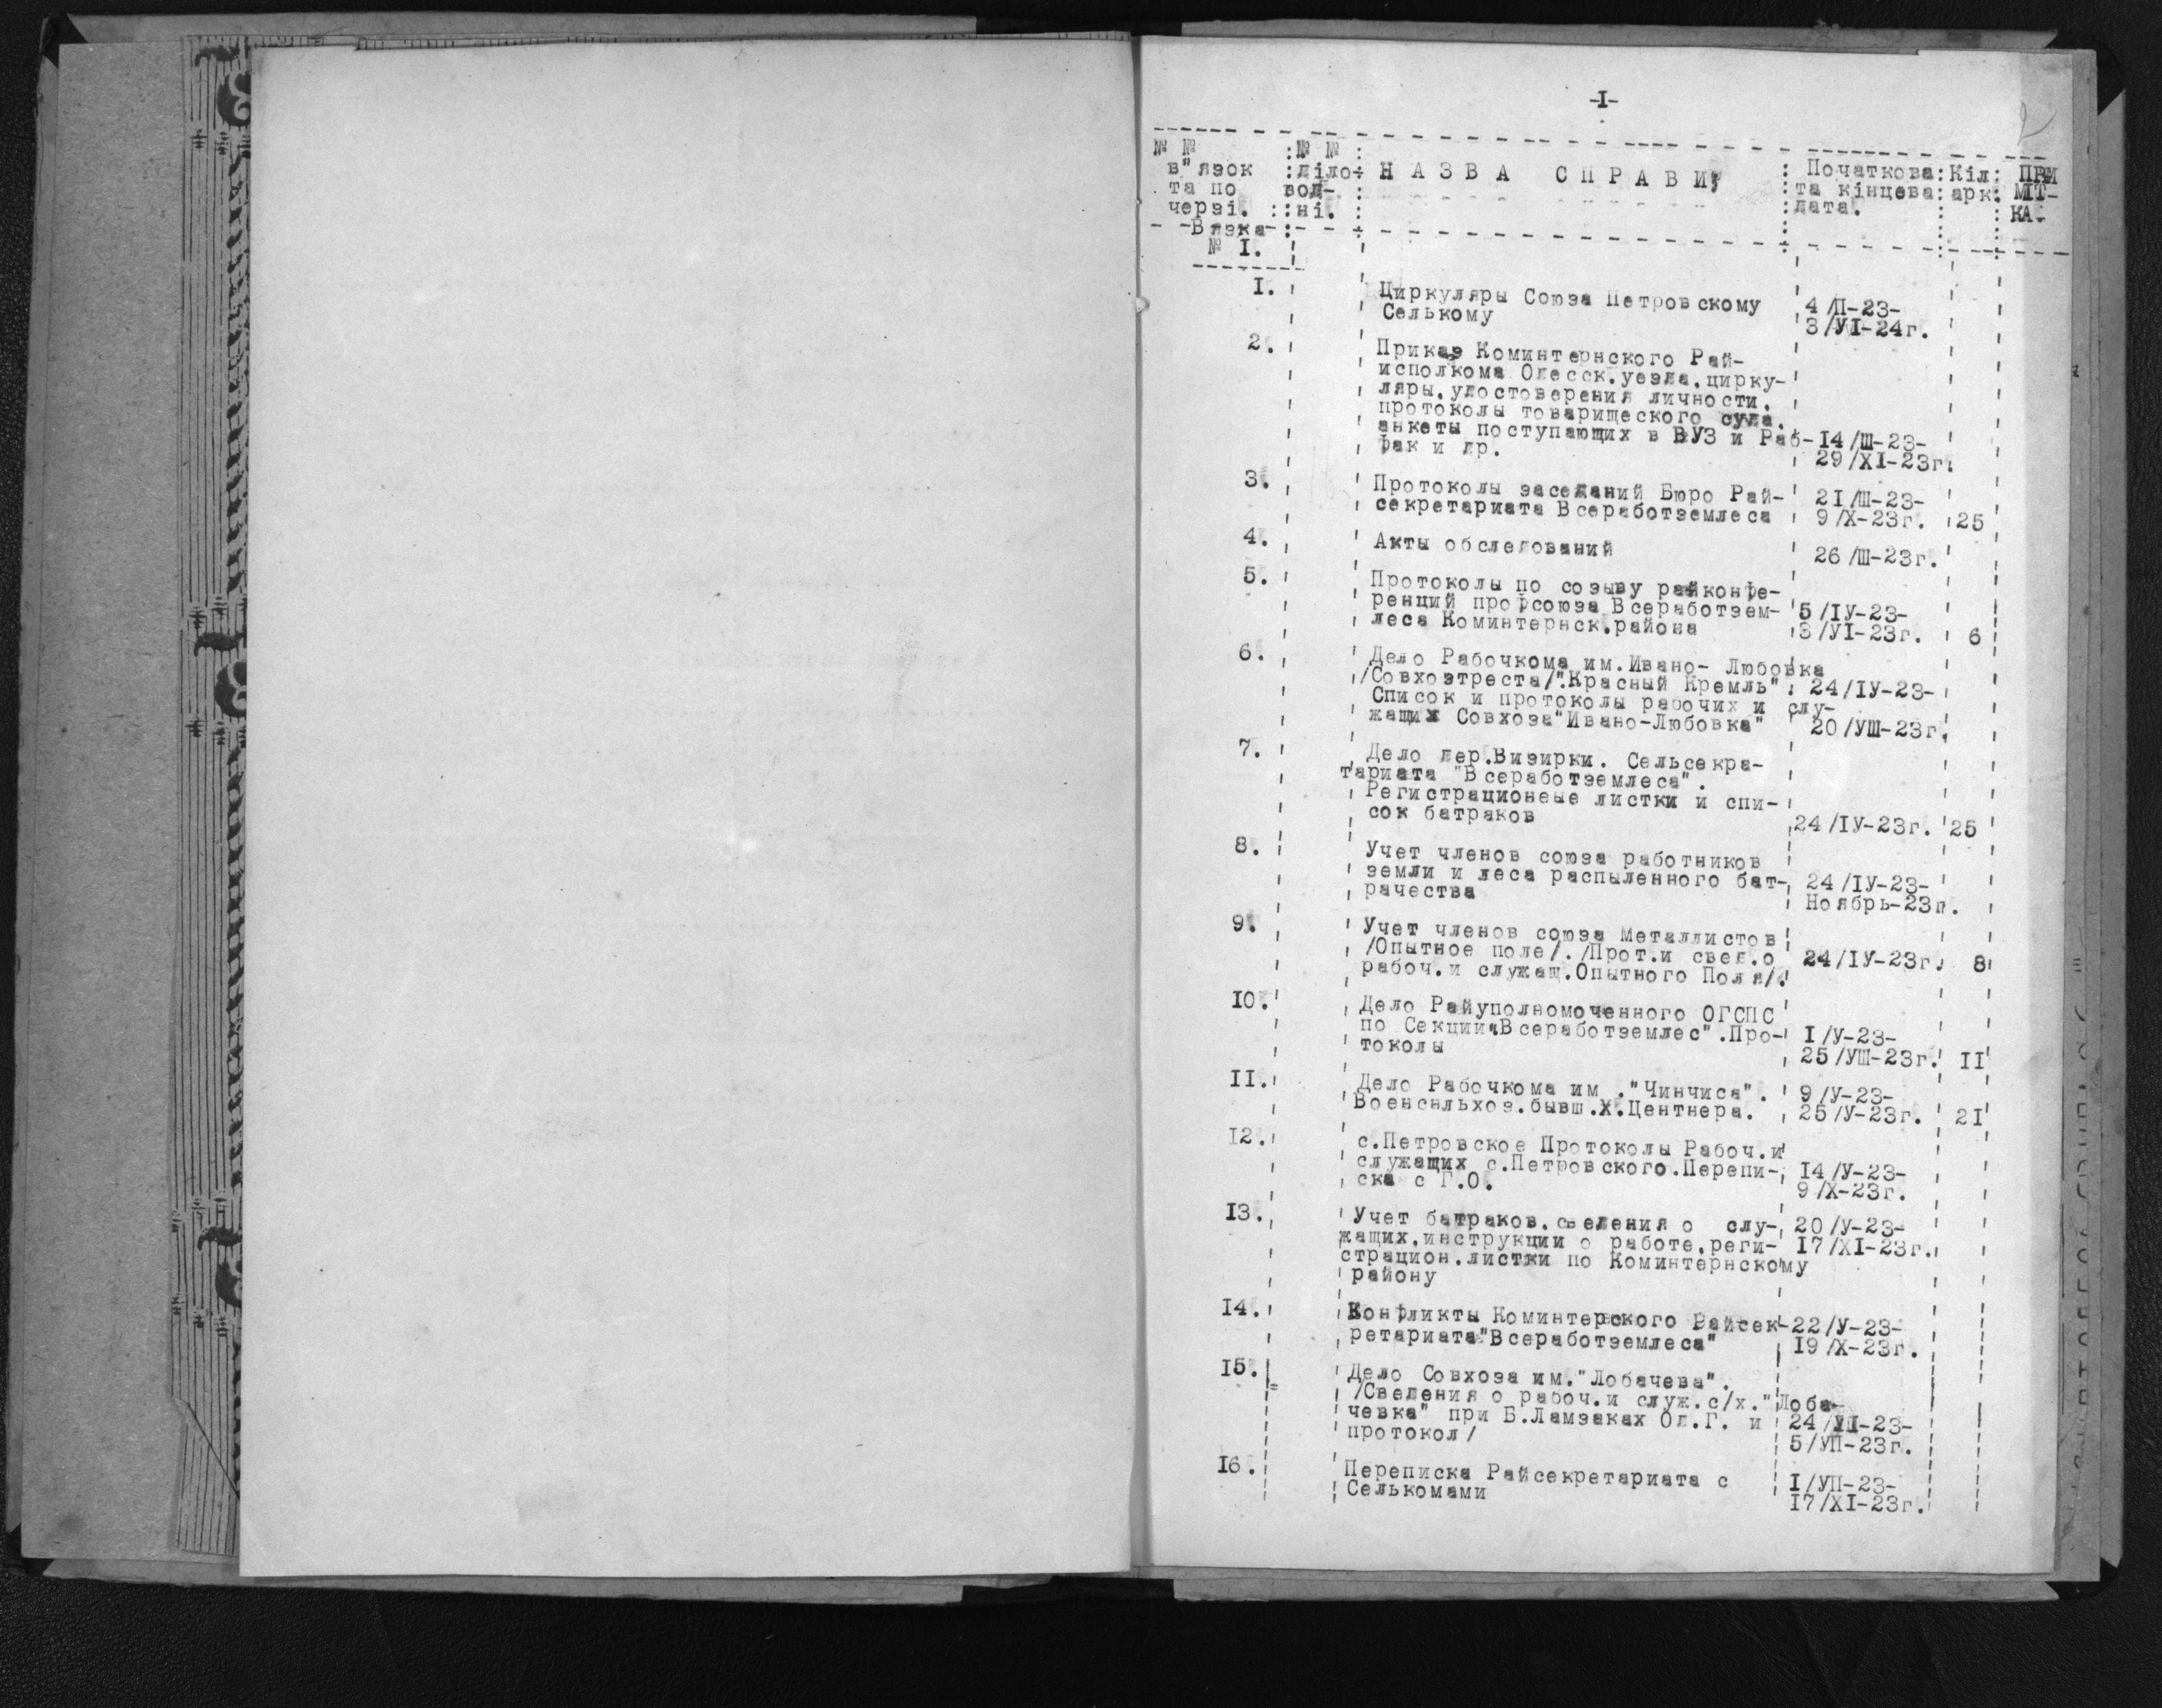 -I-
2
№ № :№ № : Н А З В А С П Р А В И : Початкова:Кіл: ПРИ
в"язок :діло- : та кінцева:арк: МІТ-
та по вод- : дата. КА.
черзі. : :ні. :
- -Вязка-
№ I.
I. Циркуляры Союза Петровскому 4/П-23-
Селькому 3/УI-24г.
2. Приказ Коминтернского Рай-
исполкома Одесск.уезда.цирку-
ляры.удостоверения личности.
протоколы товарищеского суда.
анкеты поступающих в ВУЗ и Раб- 14/Ш-23-
фак и др. 29/XI-23г.
3. Протоколы заседаний Бюро Рай- 21/Ш-23-
секретариата Всеработземлеса 9/X-23г. 25
4. Акты обследований 26/Ш-23г.
5. Протоколы по созыву райконфе-
ренций профсоюза Всеработзем- 5/IУ-23-
леса Коминтернск.района 3/УI-23г. 6
6. Дело Рабочкома им.Ивано- Любовка
/Совхозтреста/"Красный Кремль". 24/IУ-23-
Список и протоколы рабочих и слу-
жащих Совхоза"Ивано-Любовка" 20/УШ-23г.
7. Дело дер.Визирки. Сельсекра-
тариата "Всеработземлеса".
Регистрационеые листки и спи-
сок батраков 24/IУ-23г. 25
8. Учет членов союза работников
земли и леса распыленного бат- 24/IУ-23-
рачества Ноябрь-23г.
9. Учет членов союза Металлистов
/Опытное поле/./Прот.и свед.о 24/IУ-23г. 8
рабоч.и служащ.Опытного Поля/.
10. Дело Райуполномоченного ОГСПС
по Секции"Всеработземлес".Про- I/У-23-
токолы 25/УШ-23г. II
II. Дело Рабочкома им ."Чинчиса". 9/У-23-
Военсельхоз.бывш.Х.Центнера. 25/У-23г. 21
12. с.Петровское Протоколы Рабоч.и
служащих с.Петровского.Перепи- 14/У-23-
ска с Г.О. 9/X-23г.
13. Учет батраков.сведения о слу- 20/У-23-
жащих.инструкции о работе.реги- 17/XI-23г.
страцион.листки по Коминтернскому
району
14. Конфликты Коминтерского Райсек- 22/У-23-
ретариата"Всеработземлеса" 19/X-23г.
15. Дело Совхоза им."Лобачева".
/Сведения о рабоч.и служ.с/х."Лоба-
чевка" при Б.Ламзаках Од.Г. и 24/УI-23-
протокол/ 5/УП-23г.
16. Переписка Райсекретариата с I/УП-23-
Селькомами 17/XI-23г.